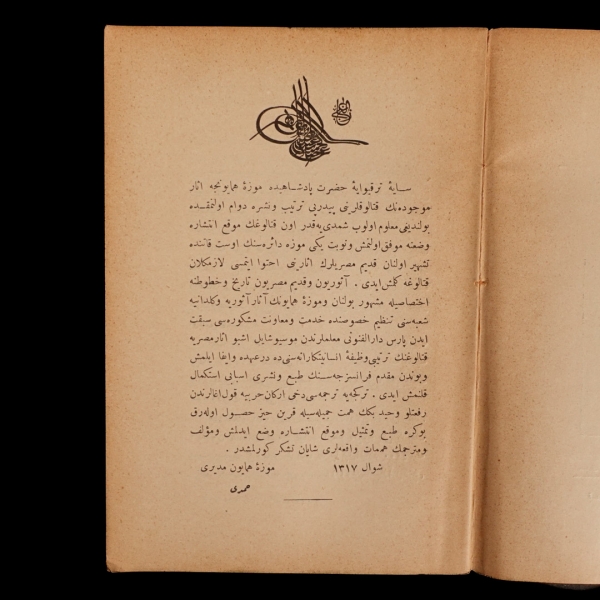 سایهٔ ترقیوایهٔ حضرت پادشاهیده موزهٔ همایونجه آثار
موجوده‌نك قتالوقلرینی پیدرپی ترتیب و نشره دوام اولنمقده
بولندیغی معلوم اولوب شمدی‌یه‌قدر اون قتالوغك موقع انتشاره
وضعنه موفق اولنمش ونوبت یكی موزه دائره‌سنك اوست قاتنده
تشهیر اولنان قدیم مصریلرك آثارینی احتوا ایتمسی لازمكلان
قتالوغه كلمش‌ایدی . آثوریون وقدیم مصریون تاریخ وخطوطنه
اختصاصیله مشهور بولنان وموزهٔ همایونك آثار آثوریه وكلدانیه
شعبه‌سنی تنظیم خصوصنده خدمت ومعاونت مشكوره‌سی سبقت
ایدن پارس دارالفنونی معلملرندن موسیو شایل اشبو آثار مصریه
قتالوغنك ترتیبی وظیفهٔ انسانیتكارانه‌سنی‌ده درعهده وایفا ایلمش
وبوندن مقدم فرانسزجه‌سنك طبع ونشری اسبابی استكمال
قلنمش ایدی . تركجه‌یه ترجمه‌سی دخی اركان حربیه قول‌اغالرندن
رفعتلو وحید بكك همت جمیله‌سیله قرین حیز حصول اوله‌رق
بوكره طبع وتمثیل وموقع انتشاره وضع ایدلمش ومؤلف
ومترجمك هممات واقعه‌لری شایان تشكر كورلمشدر .
شوال ١٣١٧ موزهٔ همایون مدیری
حمدی